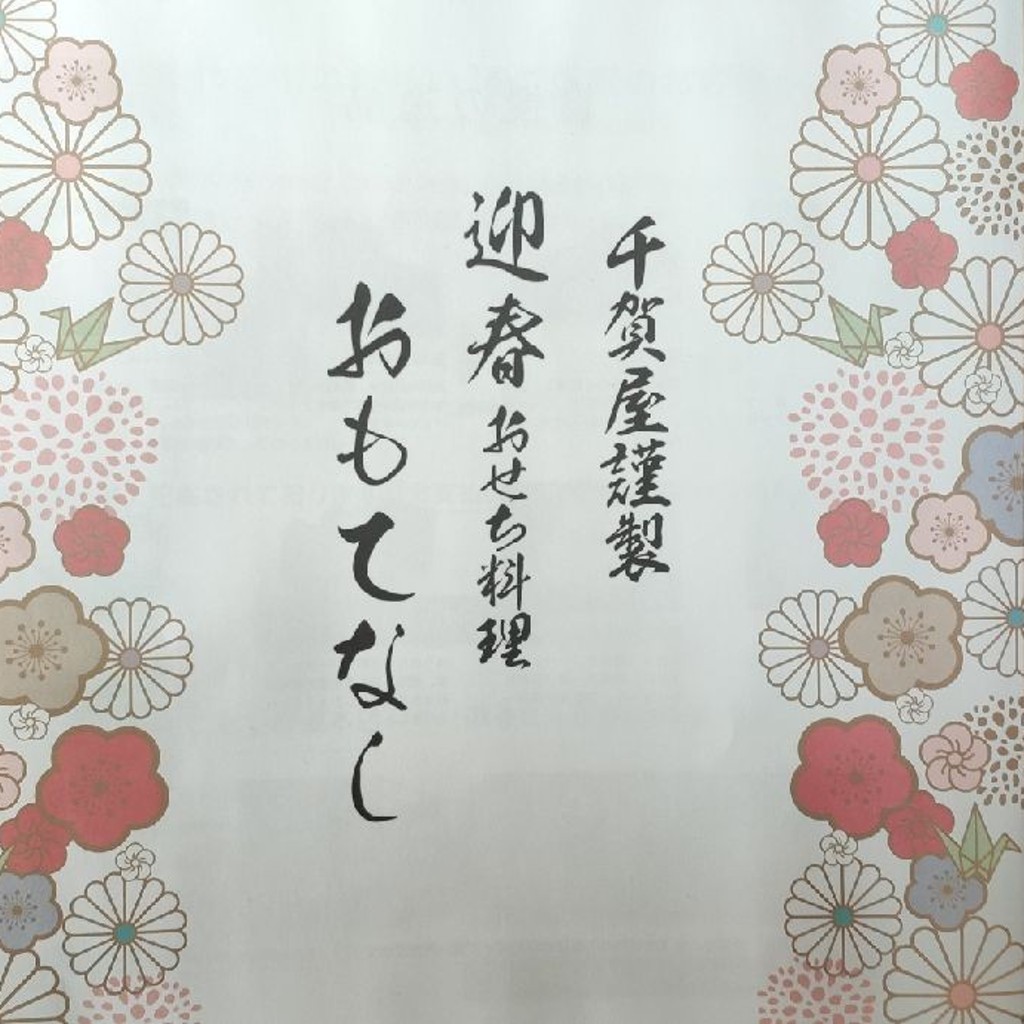 千賀屋謹製
迎春おせち料理
おもてなし